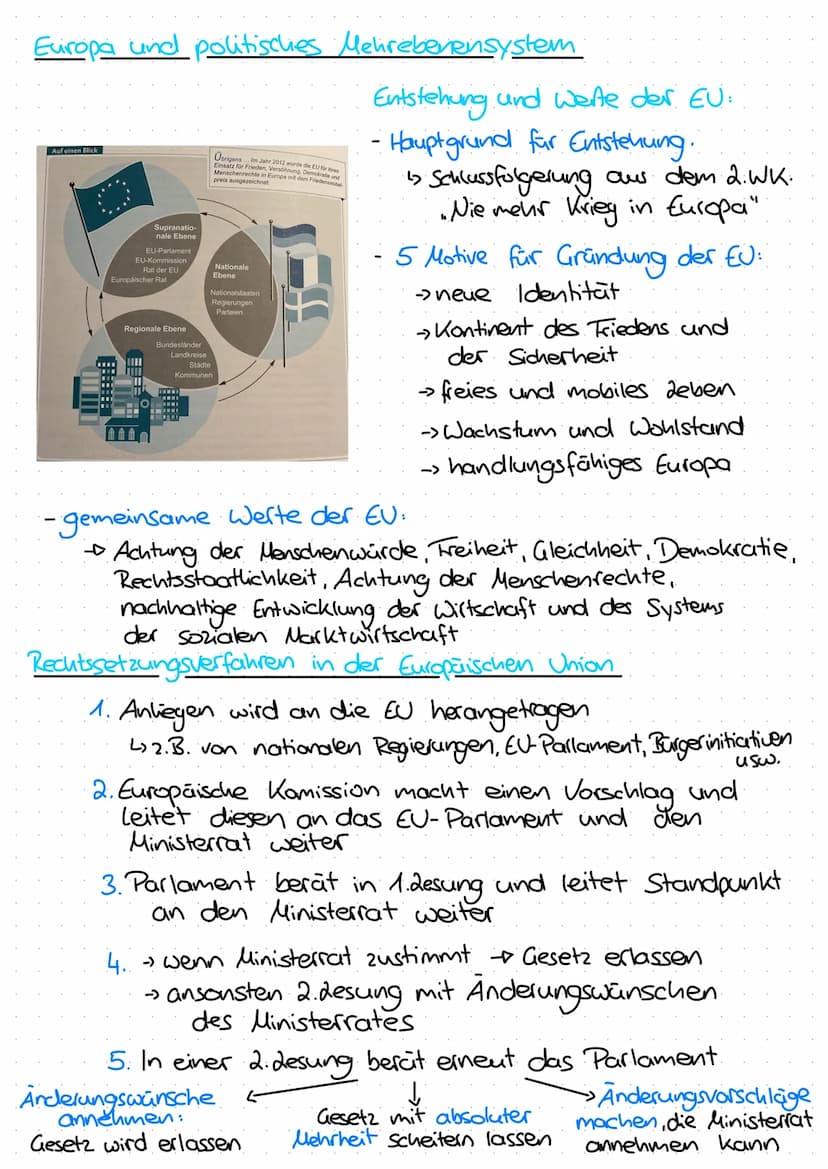 Europa und politisches Mehrebenensystem
Entstehung und Werte der EU:
- Hauptgrund für Entstehung.
↳ Schlussfolgerung aus dem 2.WK.
„Nie mehr Krieg in Europa"
- 5 Motive für Gründung der EU:
→ neue Identität
→ Kontinent des Friedens und
der Sicherheit
→ freies und mobiles Leben
→ Wachstum und Wohlstand
→ handlungsfähiges Europa
Auf einen Blick
Übrigens ... Im Jahr 2012 wurde die EU für ihren
Einsatz für Frieden, Versöhnung, Demokratie und
Menschenrechte in Europa mit dem Friedensnobel-
preis ausgezeichnet.
Supranatio-
nale Ebene
EU-Parlament
EU-Kommission
Rat der EU
Europäischer Rat
Nationale
Ebene
Nationalstaaten
Regierungen
Parteien
Regionale Ebene
Bundesländer
Landkreise
Städte
Kommunen
- gemeinsame Werte der EU:
→ Achtung der Menschenwürde, Freiheit, Gleichheit, Demokratie,
Rechtsstaatlichkeit, Achtung der Menschenrechte,
nachhaltige Entwicklung der Wirtschaft und des Systems
der sozialen Marktwirtschaft
Rechtssetzungsverfahren in der Europäischen Union
1. Anliegen wird an die EU herangetragen
↳ z.B. von nationalen Regierungen, EU-Parlament, Bürgerinitiativen
usw.
2. Europäische Komission macht einen Vorschlag und
leitet diesen an das EU-Parlament und den
Ministerrat weiter
3. Parlament berät in 1.Lesung und leitet Standpunkt
an den Ministerrat weiter
4. → wenn Ministerrat zustimmt → Gesetz erlassen
→ ansonsten 2.Lesung mit Änderungswünschen
des Ministerrates
5. In einer 2.Lesung berät erneut das Parlament
Änderungswünsche
annehmen:
Gesetz wird erlassen
Gesetz mit absoluter
Mehrheit scheitern lassen
Änderungsvorschläge
machen, die Ministerrat
annehmen kann